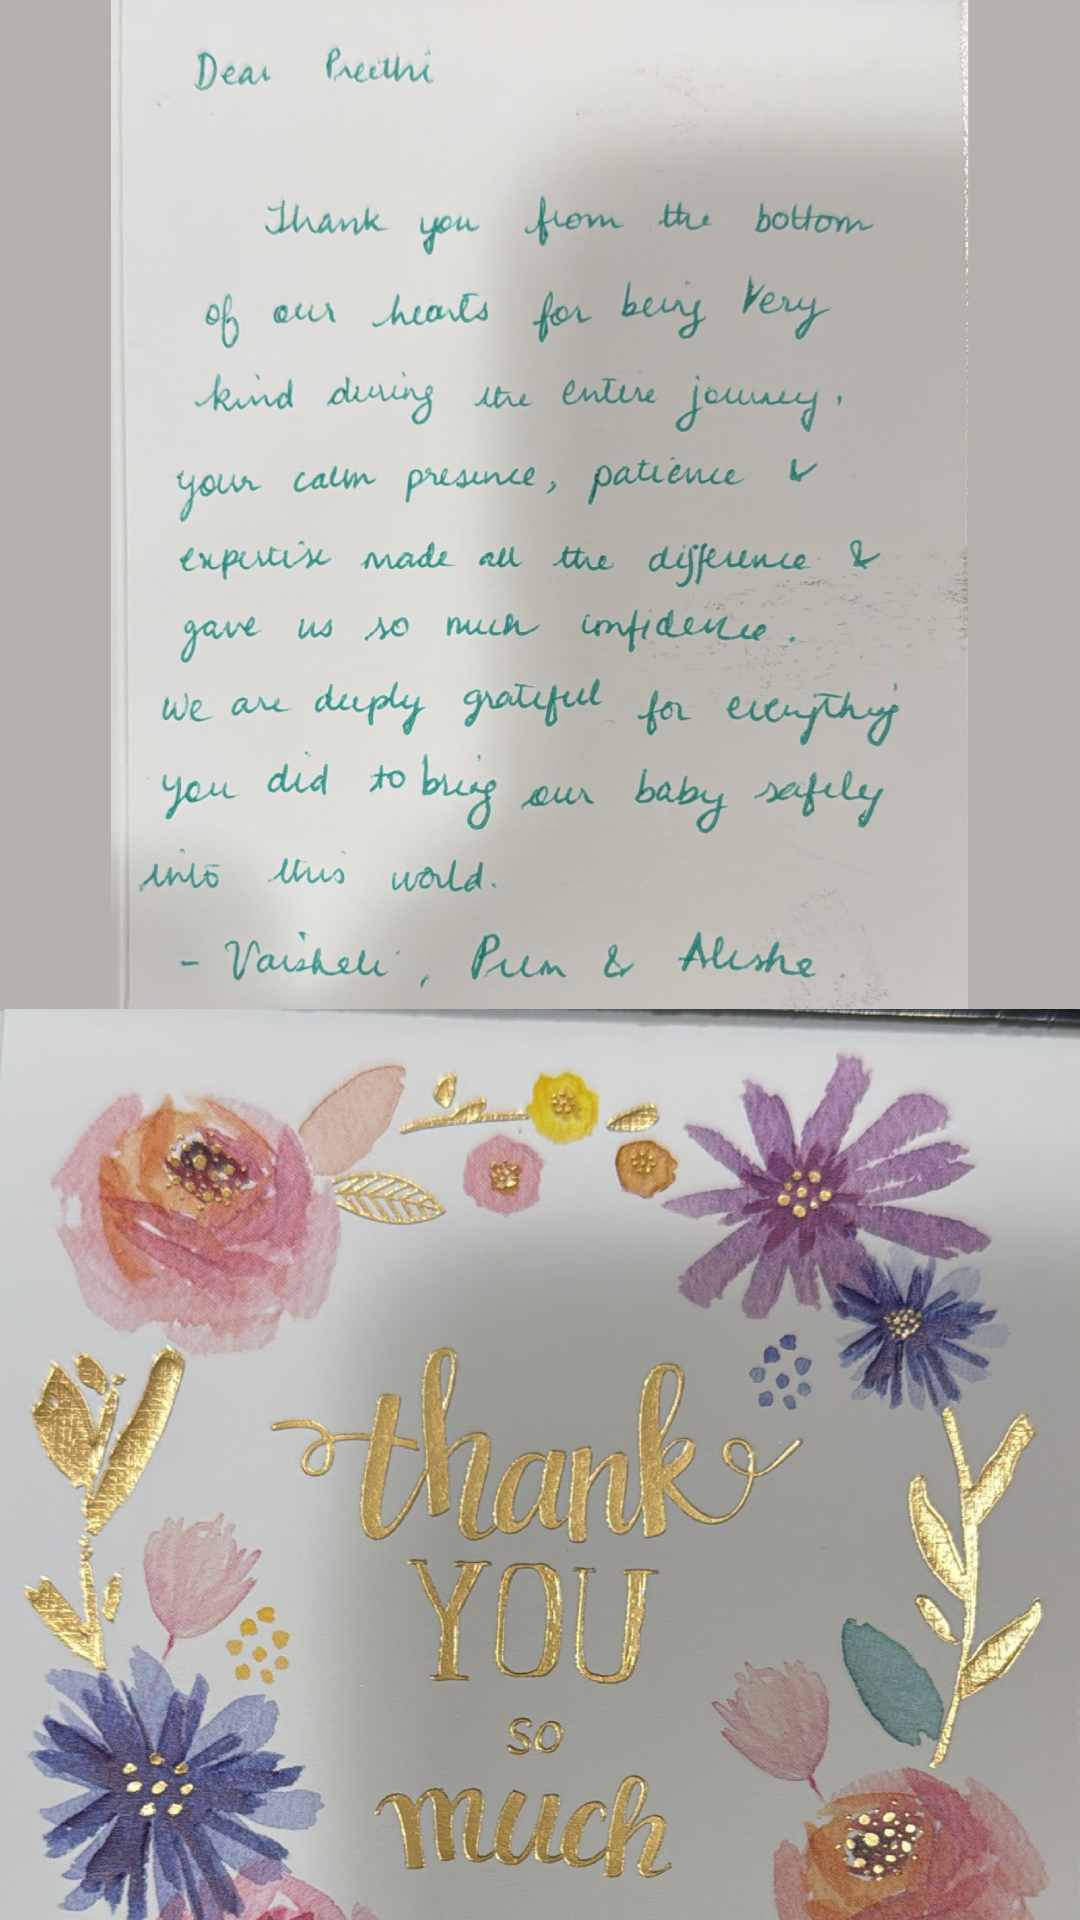 Dear Preethi
Thank you from the bottom
of our hearts for being Very
kind during the entire journey.
your calm presence, patience &
expertise made all the difference &
gave us so much confidence.
We are deeply grateful for everything
you did to bring our baby safely
into this world.
- Vaisheli, Prem & Alishe
thank
YOU
so
much